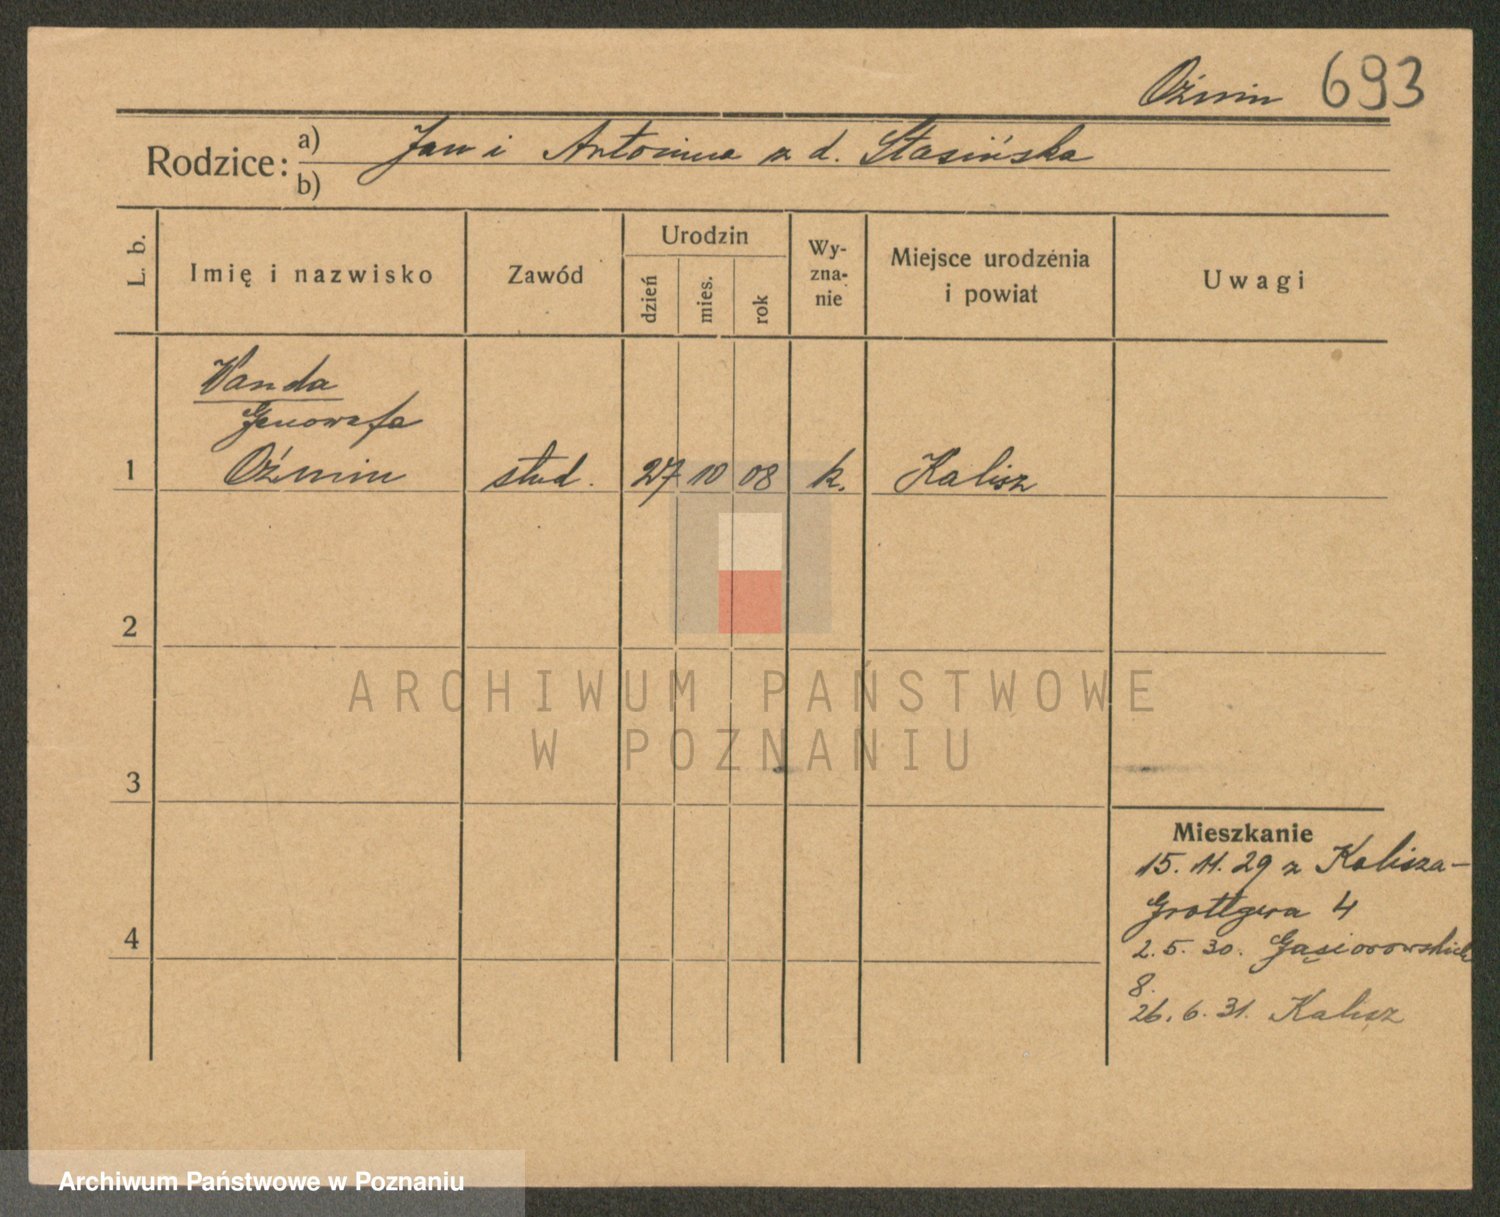 Oźmin 693
Rodzice: a) Jan i Antonina z d. Stasińska
b)
L. b.
Imię i nazwisko
Zawód
Urodzin
dzień
mies.
rok
Wy-
zna-
nie
Miejsce urodzenia
i powiat
Uwagi
Wanda
Genowefa
1 Oźmin stud. 27 10 08 k. Kalisz
2
ARCHIWUM PAŃSTWOWE
W POZNANIU
3
Mieszkanie
15. 11. 29 z Kalisza-
Grottgera 4
4
2. 5. 30. Gąsiorowskich
8.
26. 6. 31. Kalisz
Archiwum Państwowe w Poznaniu